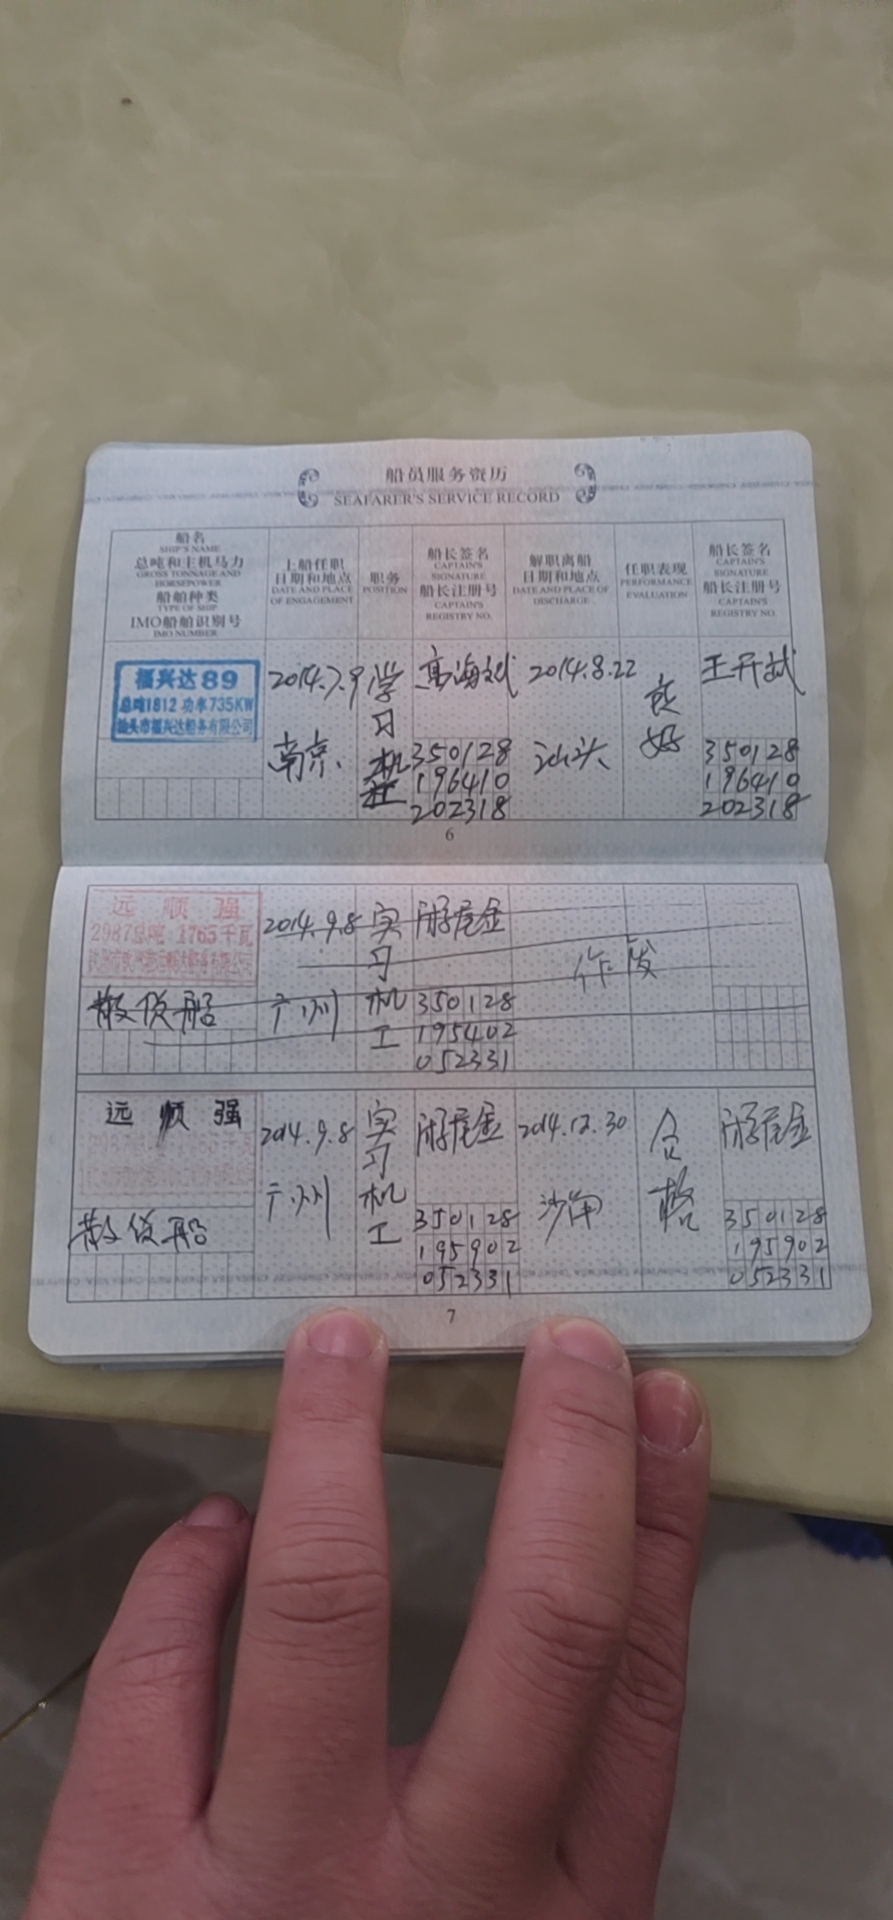 船员服务资历
SEAFARER'S SERVICE RECORD
船名
SHIP'S NAME
总吨和主机马力
GROSS TONNAGE AND
HORSEPOWER
船舶种类
TYPE OF SHIP
IMO船舶识别号
IMO NUMBER
上船任职
日期和地点
DATE AND PLACE
OF ENGAGEMENT
职务
POSITION
船长签名
CAPTAIN'S
SIGNATURE
船长注册号
CAPTAIN'S
REGISTRY NO.
解职离船
日期和地点
DATE AND PLACE OF
DISCHARGE
任职表现
PERFORMANCE
EVALUATION
船长签名
CAPTAIN'S
SIGNATURE
船长注册号
CAPTAIN'S
REGISTRY NO.
福兴达89
总吨1812 功率735KW
汕头市福兴达船务有限公司
2014.7.9
南京
学
习
机
350128
196410
202318
2014.8.22
汕头
良
好
王开斌
350128
196410
202318
6
远 顺 强
2987总吨 1765千瓦
散货船
2014.9.8
广州
实
习
机
工
350128
195402
052331
作废
远 顺 强
散货船
2014.9.8
广州
实
习
机
工
350128
195902
052331
2014.12.30
沙角
合
格
350128
195902
052331
7